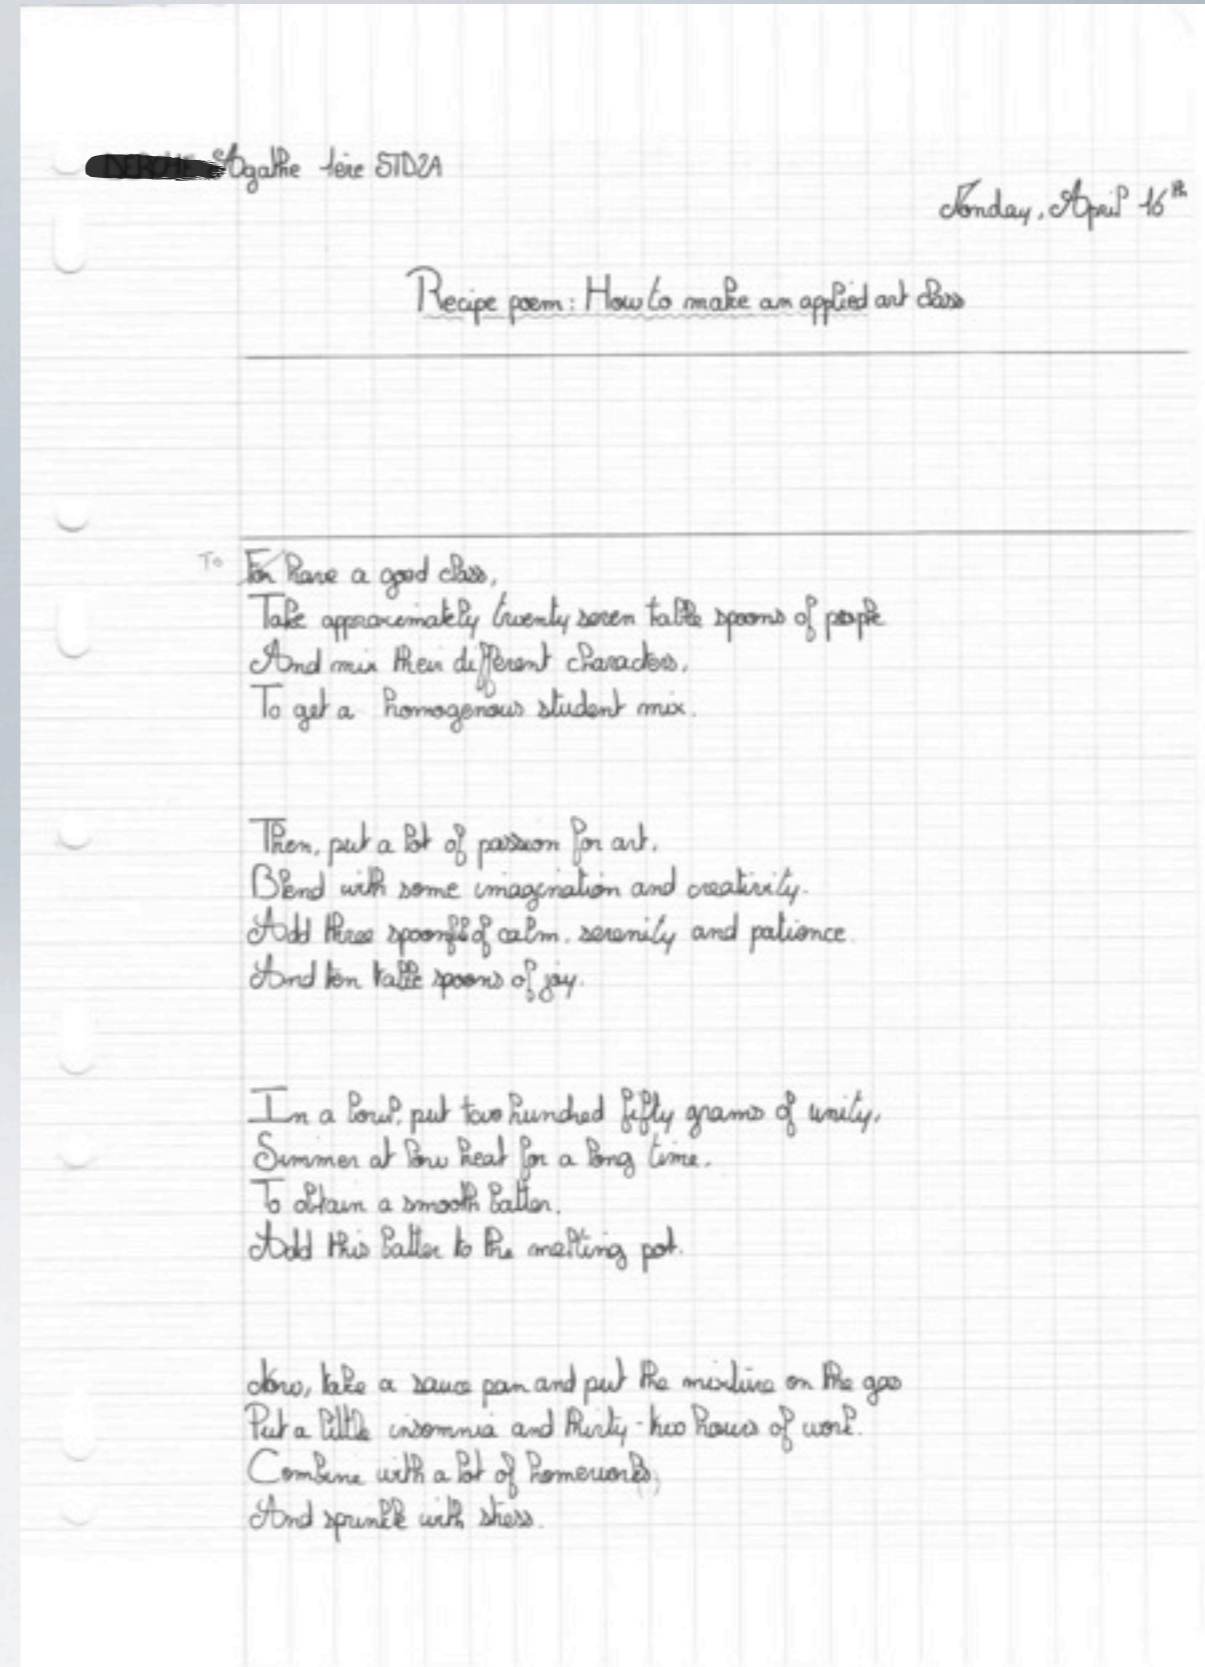 Agathe 1ère STD2A
Monday, April 16th
Recipe poem: How to make an applied art class
To For have a good class,
Take approximately twenty seven table spoons of people
And mix their different characters,
To get a homogenous student mix.
Then, put a lot of passion for art,
Blend with some imagination and creativity.
Add three spoonfls of calm, serenity and patience
And ten table spoons of joy.
In a bowl, put two hundred fifty grams of unity,
Simmer at low heat for a long time,
To obtain a smooth batter,
Add this batter to the melting pot.
Now, take a sauce pan and put the mixture on the gas
Put a little insomnia and thirty-two hours of work.
Combine with a lot of homeworks,
And sprinkle with stress.